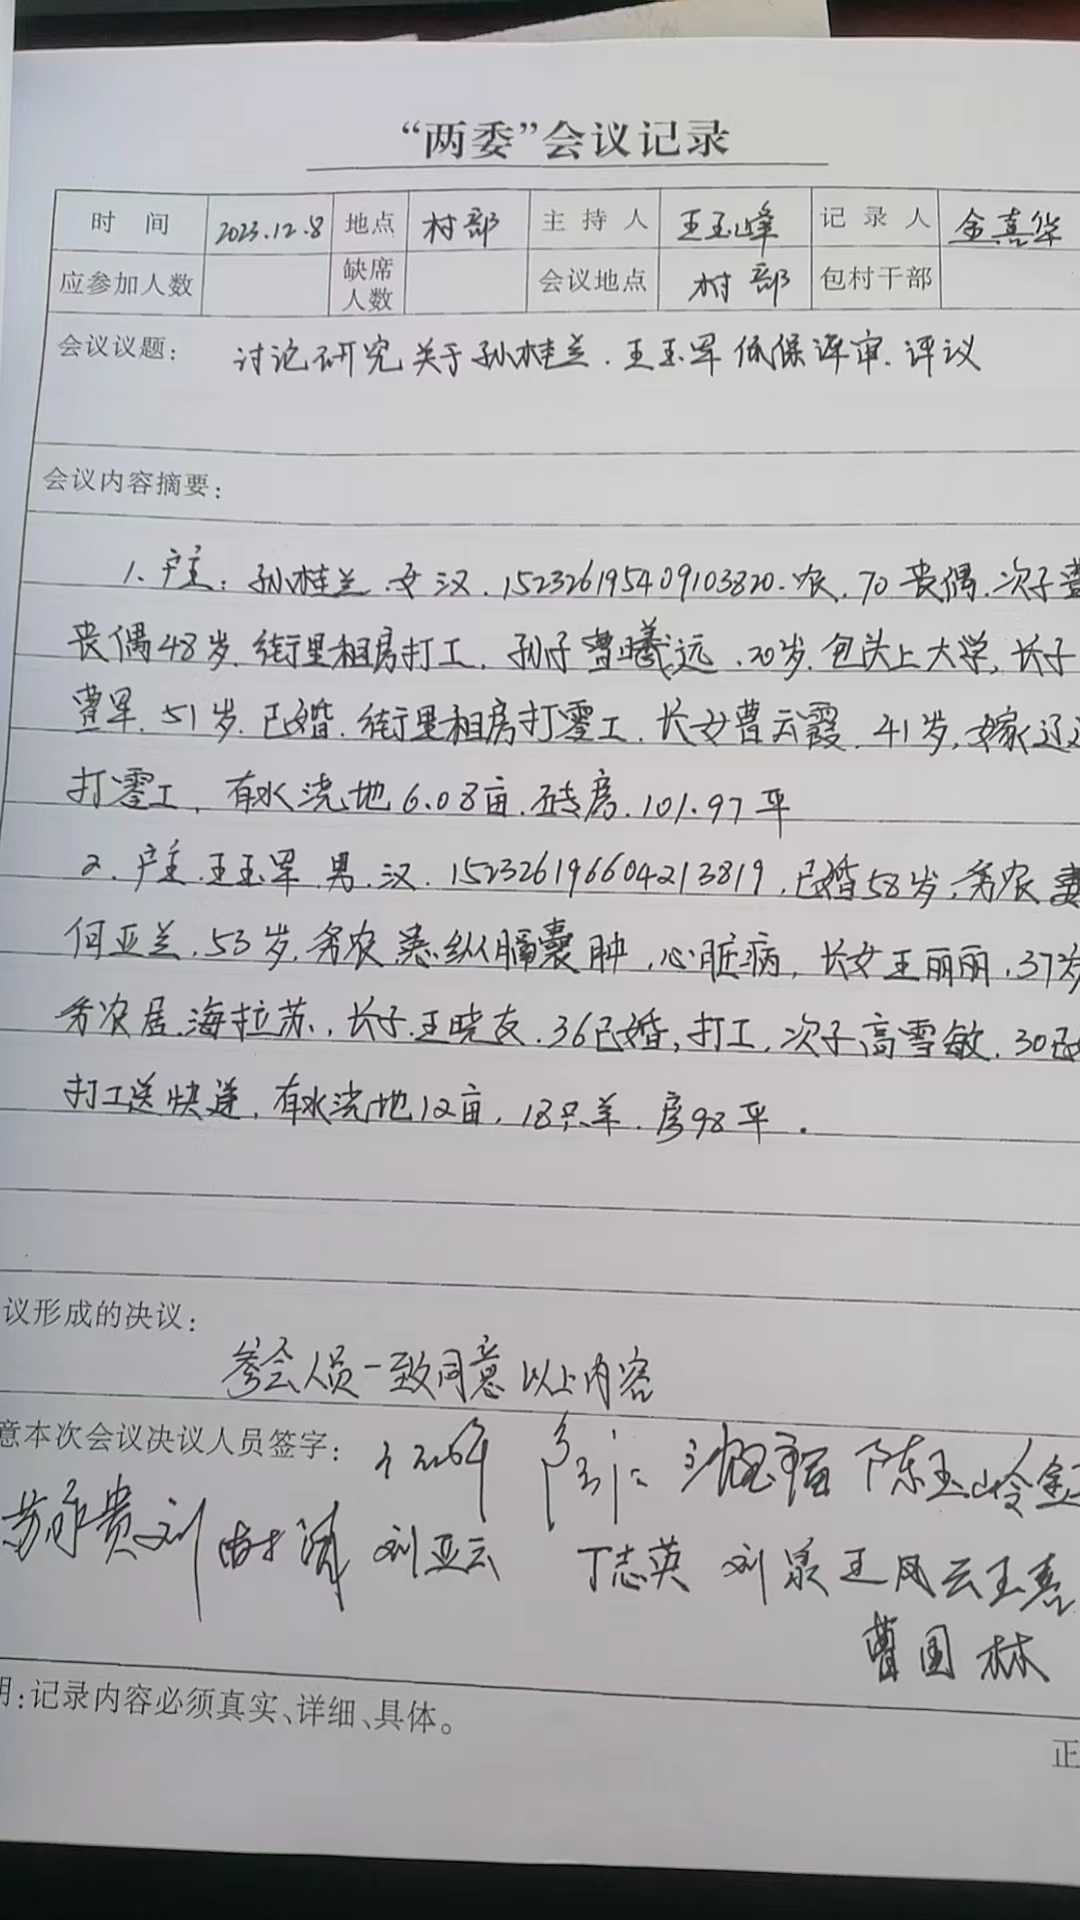 “两委”会议记录
时 间 2023.12.8 地点 村部 主 持 人 王玉峰 记 录 人 金喜华
应参加人数 缺席人数 会议地点 村部 包村干部
会议议题： 讨论研究关于孙桂兰.王玉军低保评审.评议
会议内容摘要：
1.户主：孙桂兰.女汉.152326195409103820.农.70丧偶.次子曹
丧偶48岁.街里租房打工，孙子曹曦远.20岁.包头上大学，长子
曹军.51岁.已婚.街里租房打零工.长女曹云霞.41岁，嫁辽
打零工，有水浇地6.08亩.砖房.101.97平
2.户主.王玉军.男.汉.152326196604213819，已婚58岁，务农 妻
何亚兰.53岁，务农 患纵膈囊肿，心脏病，长女王丽丽，37岁
务农居海拉苏，长子王晓友.36已婚，打工，次子高雪敏.30已
打工送快递，有水浇地12亩，18只羊.房98平.
议形成的决议：
参会人员一致同意以上内容
意本次会议决议人员签字： 陈玉岭
苏永贵 刘 刘亚云 丁志英 刘泉 王凤云 王喜
曹国林
明：记录内容必须真实、详细、具体。
正